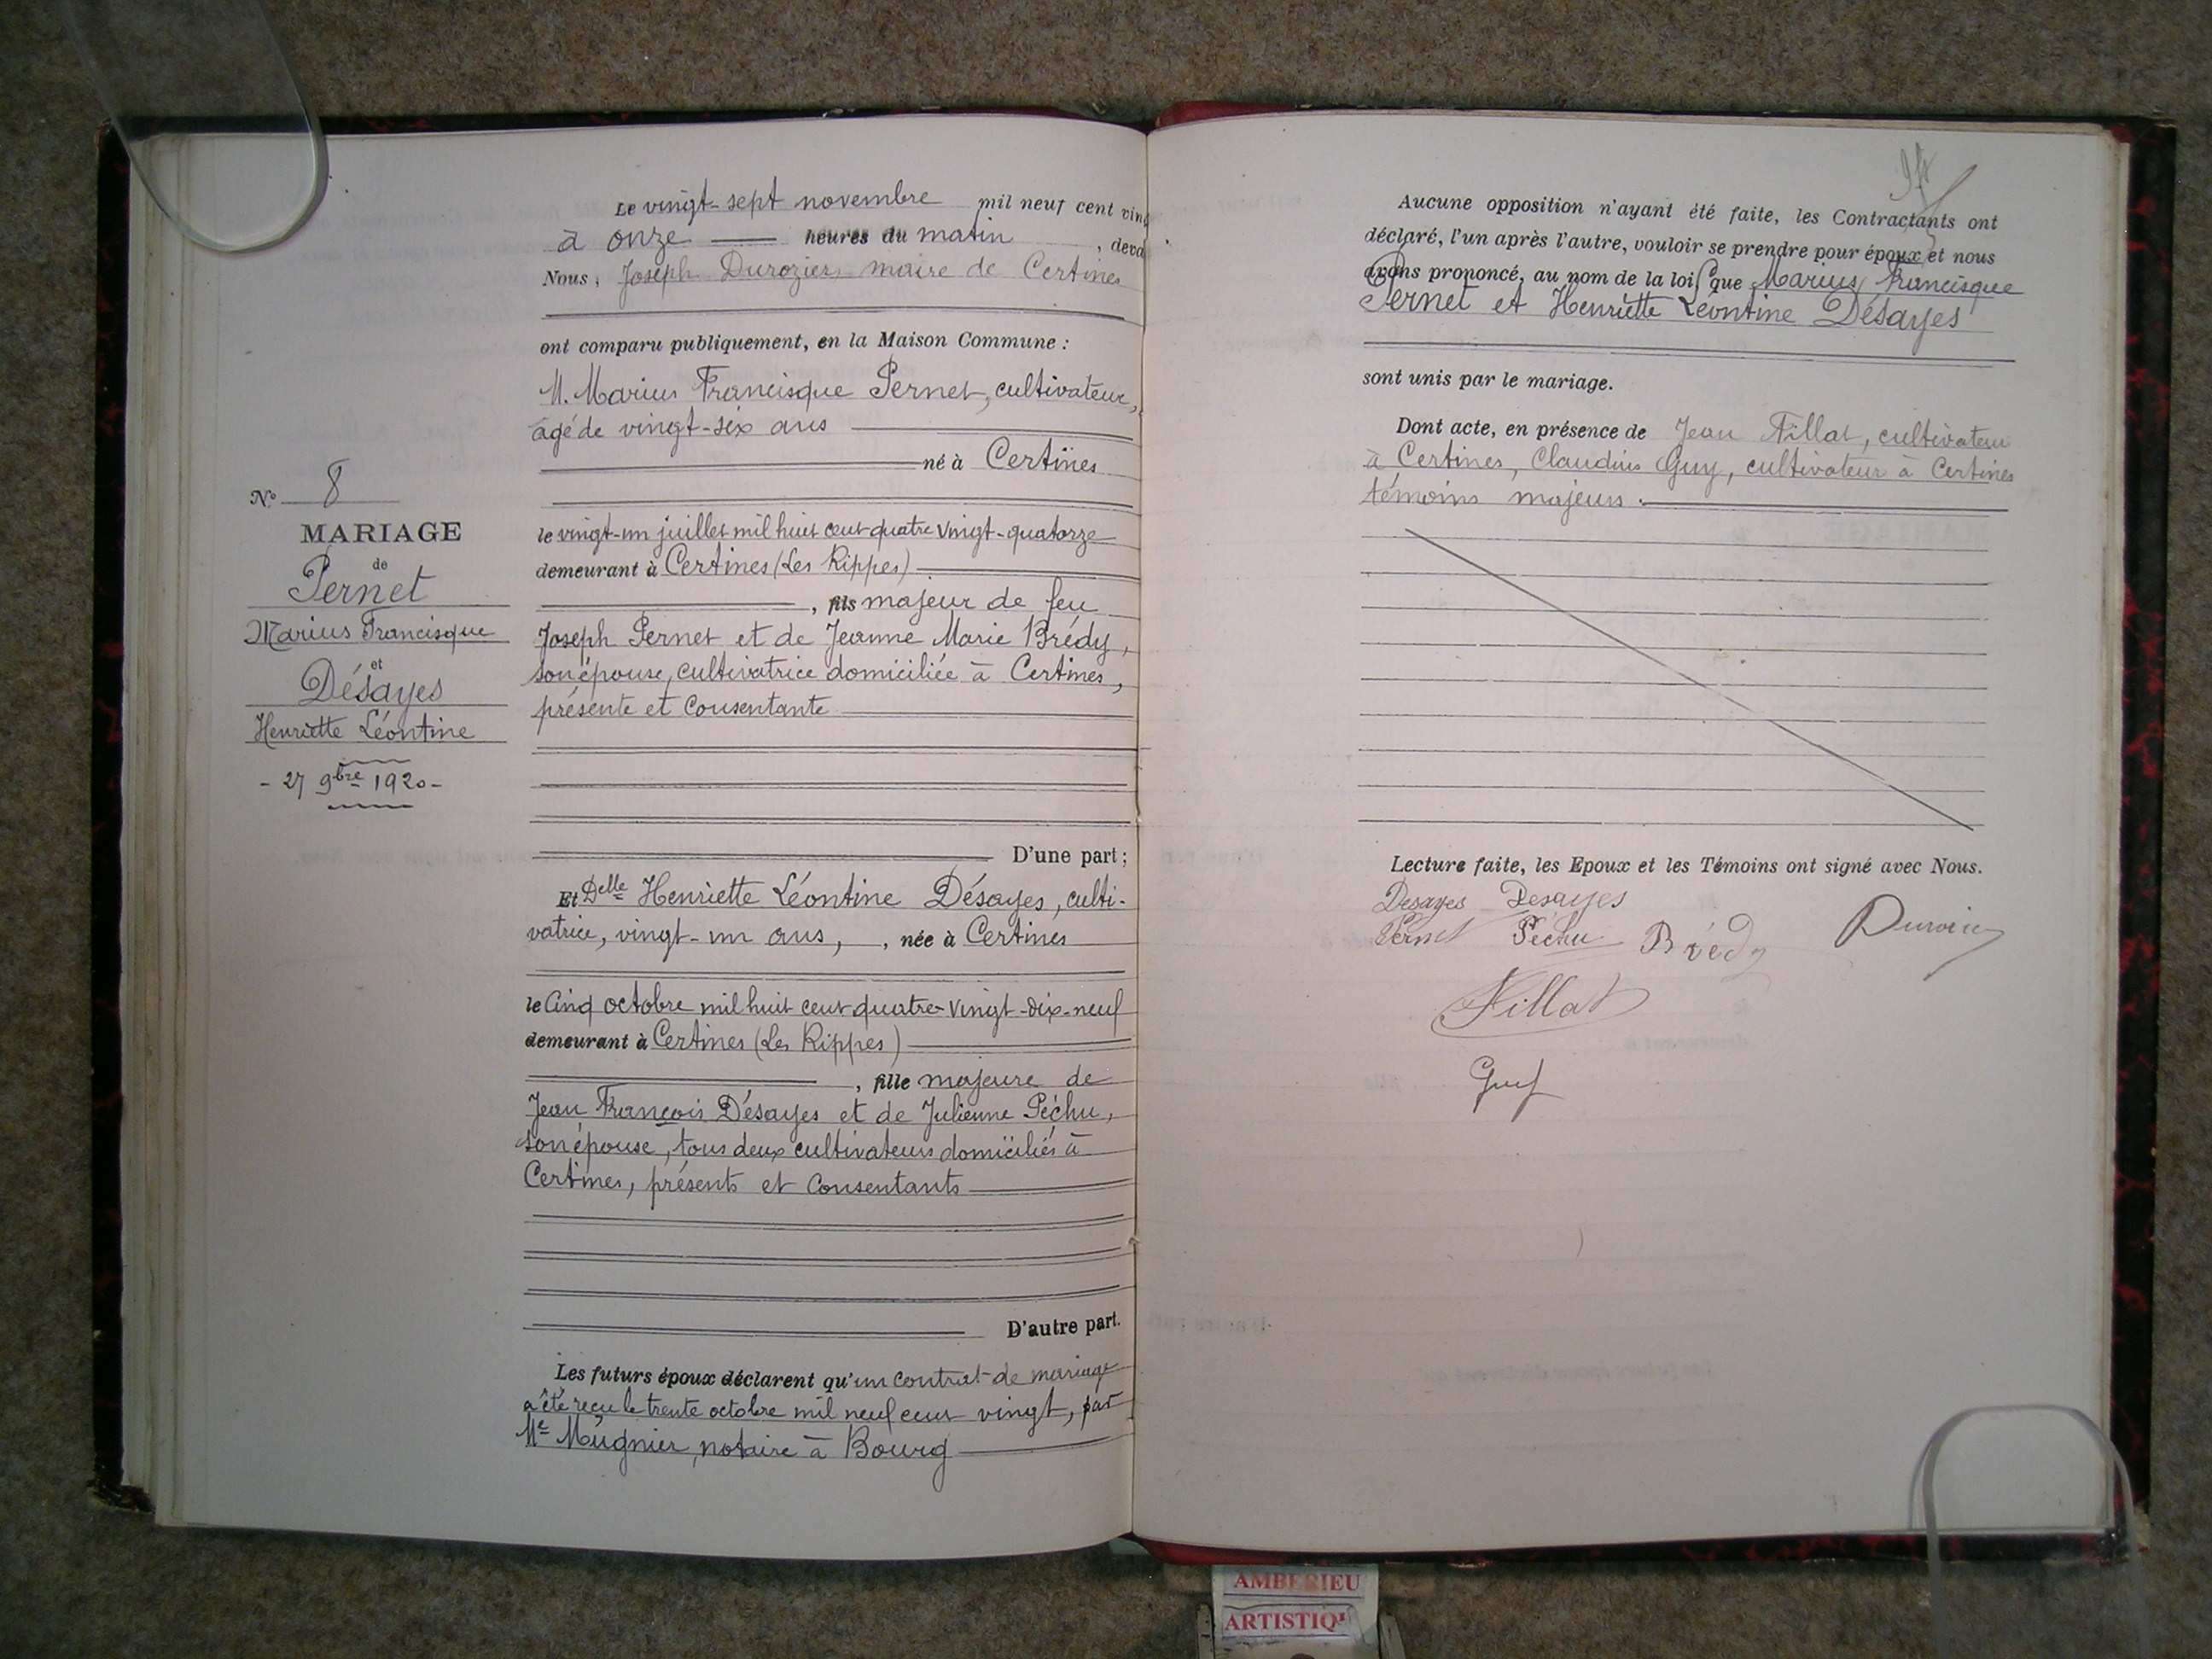 Le vingt-sept novembre mil neuf cent vin
à onze heures du matin, deva
Nous, Joseph Durozier, maire de Certines
ont comparu publiquement, en la Maison Commune :
M. Marius Francisque Pernet, cultivateur,
âgé de vingt-six ans
né à Certines
le vingt-un juillet mil huit cent quatre vingt-quatorze
demeurant à Certines (Les Rippes)
, fils majeur de feu
Joseph Pernet et de Jeanne Marie Brédy,
son épouse, cultivatrice domiciliée à Certines,
présente et consentante
D'une part ;
N° 8
MARIAGE
de
Pernet
Marius Francisque
et
Désayes
Henriette Léontine
- 27 9bre 1920 -
Et Delle Henriette Léontine Désayes, culti-
vatrice, vingt-un ans, , née à Certines
le Cinq octobre mil huit cent quatre-vingt-dix-neuf
demeurant à Certines (Les Rippes)
, fille majeure de
Jean François Désayes et de Julienne Péchu,
son épouse, tous deux cultivateurs domiciliés à
Certines, présents et consentants
D'autre part.
Les futurs époux déclarent qu'un contrat de mariage
a été reçu le trente octobre mil neuf cent vingt, par
Me Mugnier, notaire à Bourg
Aucune opposition n'ayant été faite, les Contractants ont
déclaré, l'un après l'autre, vouloir se prendre pour époux et nous
avons prononcé, au nom de la loi, que Marius Francisque
Pernet et Henriette Léontine Désayes
sont unis par le mariage.
Dont acte, en présence de Jean Fillat, cultivateur
à Certines, Claudius Guy, cultivateur à Certines
témoins majeurs.
Lecture faite, les Epoux et les Témoins ont signé avec Nous.
Desayes Desayes
Pernet Péchu Brédy Durozier
Fillat
Guy
AMBERIEU
ARTISTIQU